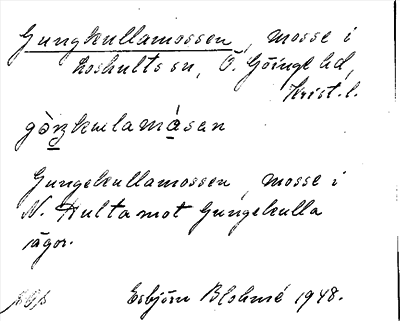 Gungkullamossen, mosse i
Loshults sn, Ö. Göinge hd,
Krist. l.
gòŋkulamåsan
Gungekullamossen, mosse i
N. Hulta mot Gungekulla
ägor.
Esbjörn Blohmé 1948.